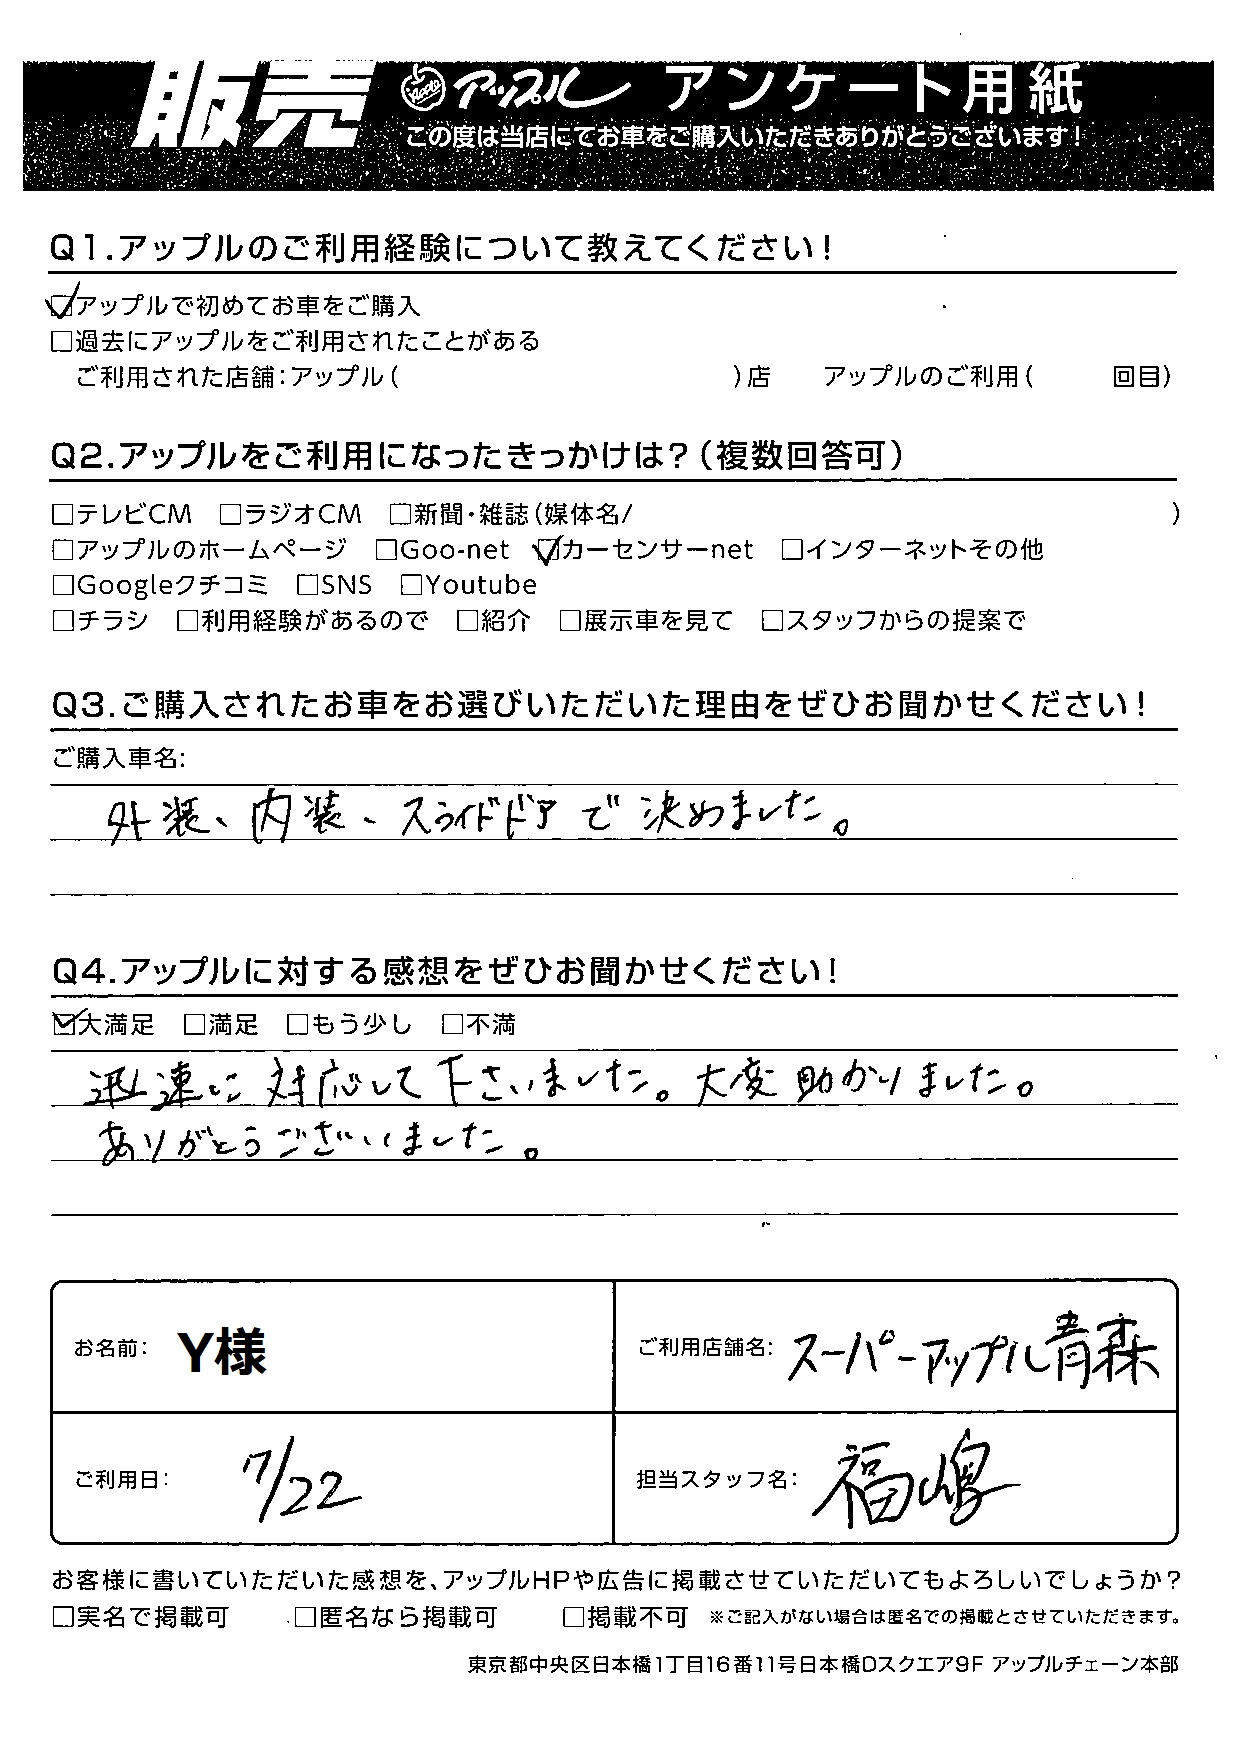 販売 Apple アップル アンケート用紙
この度は当店にてお車をご購入いただきありがとうございます!
Q1.アップルのご利用経験について教えてください!
☑アップルで初めてお車をご購入
□過去にアップルをご利用されたことがある
ご利用された店舗:アップル( )店 アップルのご利用( 回目)
Q2.アップルをご利用になったきっかけは?(複数回答可)
□テレビCM □ラジオCM □新聞・雑誌(媒体名/ )
□アップルのホームページ □Goo-net ☑カーセンサーnet □インターネットその他
□Googleクチコミ □SNS □Youtube
□チラシ □利用経験があるので □紹介 □展示車を見て □スタッフからの提案で
Q3.ご購入されたお車をお選びいただいた理由をぜひお聞かせください!
ご購入車名:
外装、内装、スライドドアで決めました。
Q4.アップルに対する感想をぜひお聞かせください!
☑大満足 □満足 □もう少し □不満
迅速に対応して下さいました。大変助かりました。
ありがとうございました。
お名前: Y様 ご利用店舗名: スーパーアップル青森
ご利用日: 7/22 担当スタッフ名: 福嶋
お客様に書いていただいた感想を、アップルHPや広告に掲載させていただいてもよろしいでしょうか?
□実名で掲載可 □匿名なら掲載可 □掲載不可 ※ご記入がない場合は匿名での掲載とさせていただきます。
東京都中央区日本橋1丁目16番11号日本橋Dスクエア9F アップルチェーン本部